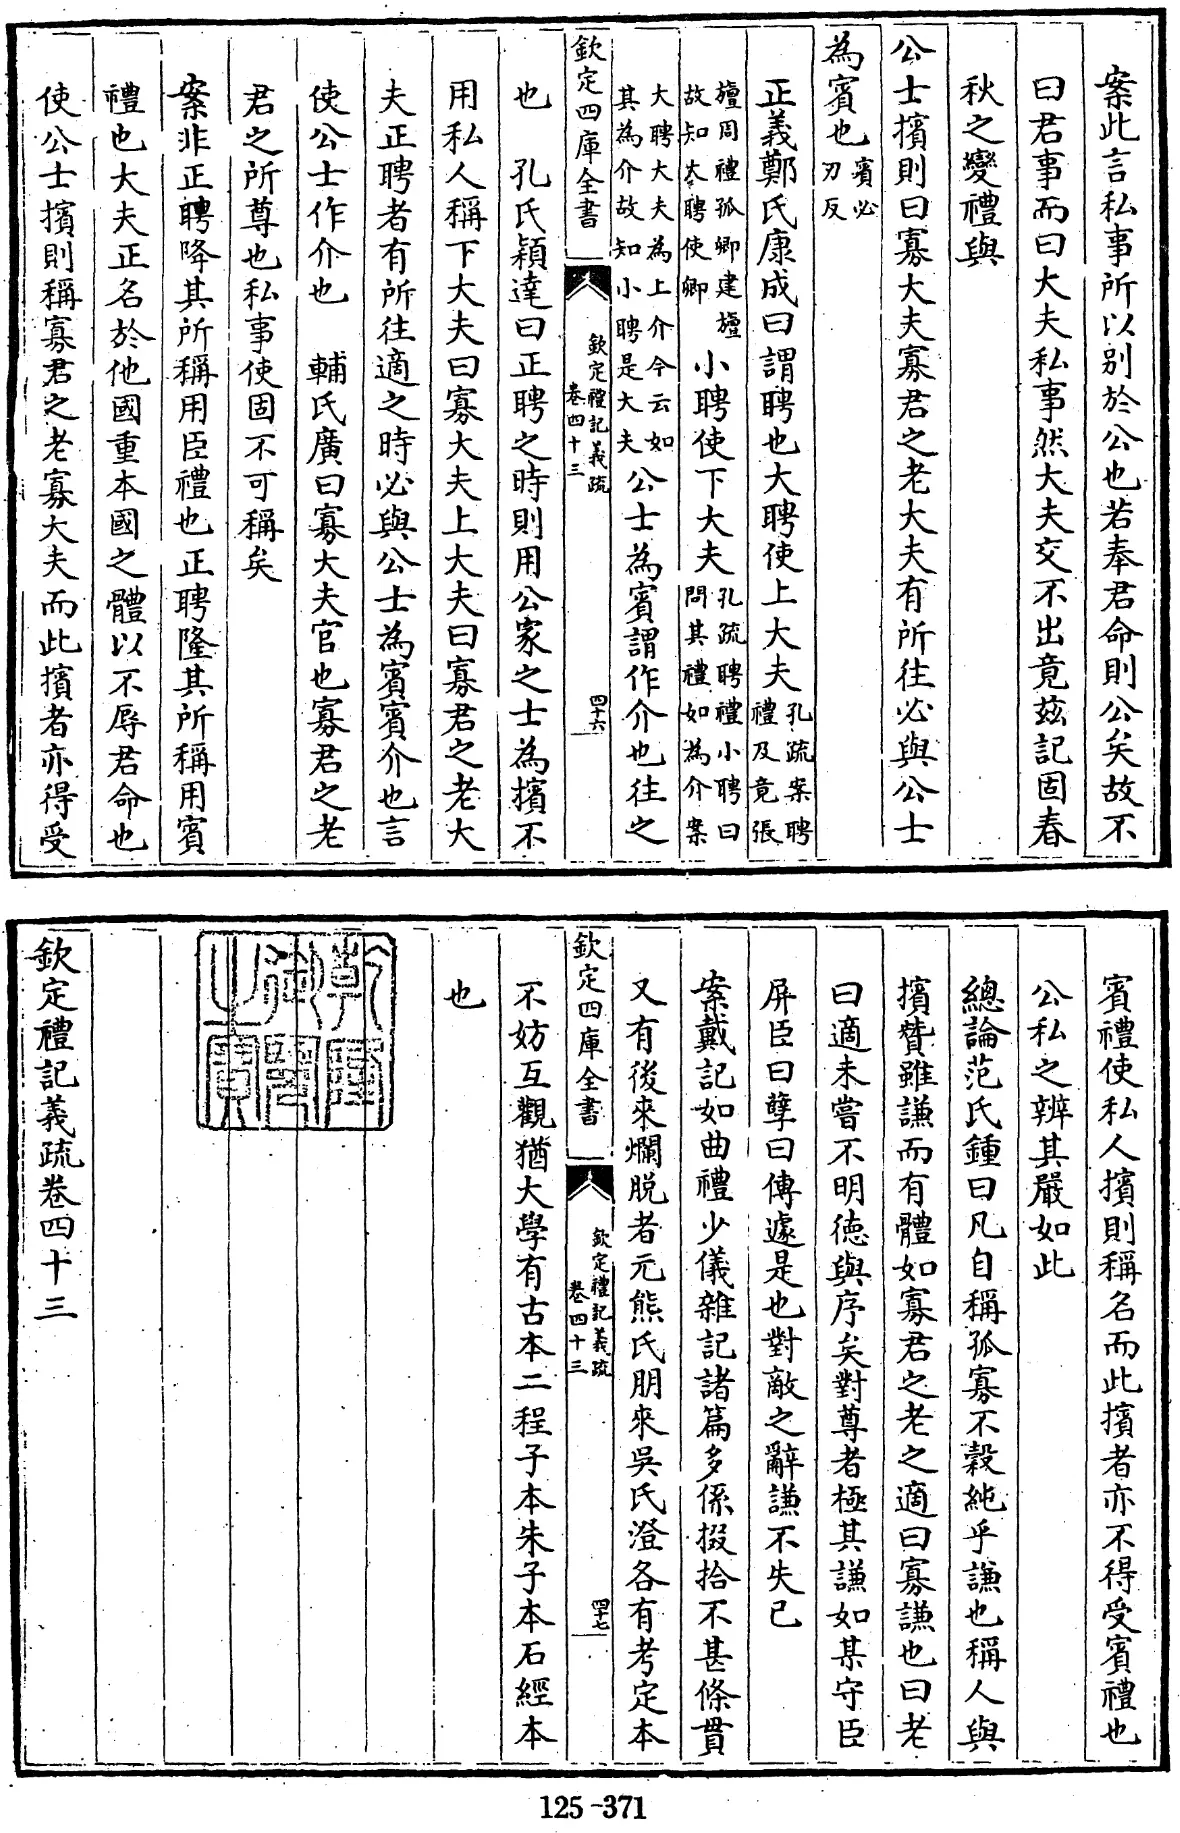 案此言私事所以别於公也若奉君命則公矣故不
曰君事而曰大夫私事然大夫交不出竟兹記固春
秋之變禮與
公士擯則曰寡大夫寡君之老大夫有所往必與公士
為賓也賓必
刃反
正義鄭氏康成曰謂聘也大聘使上大夫孔疏案聘
禮及竟張
旜周禮孤卿建旜
故知大聘使卿
小聘使下大夫孔疏聘禮小聘曰
問其禮如為介案
大聘大夫為上介今云如
其為介故知小聘是大夫
公士為賓謂作介也往之
欽定四庫全書
欽定禮記義疏
卷四十三
四十六
也 孔氏穎達曰正聘之時則用公家之士為擯不
用私人稱下大夫曰寡大夫上大夫曰寡君之老大
夫正聘者有所往適之時必與公士為賓賓介也言
使公士作介也 輔氏廣曰寡大夫官也寡君之老
君之所尊也私事使固不可稱矣
案非正聘降其所稱用臣禮也正聘隆其所稱用賓
禮也大夫正名於他國重本國之體以不辱君命也
使公士擯則稱寡君之老寡大夫而此擯者亦得受
賓禮使私人擯則稱名而此擯者亦不得受賓禮也
公私之辨其嚴如此
總論范氏鍾曰凡自稱孤寡不穀純乎謙也稱人與
擯贊雖謙而有體如寡君之老之適曰寡謙也曰老
曰適未嘗不明德與序矣對尊者極其謙如某守臣
屏臣曰孽曰傳遽是也對敵之辭謙不失己
案戴記如曲禮少儀雜記諸篇多係掇拾不甚條貫
又有後來爛脱者元熊氏朋來吳氏澄各有考定本
欽定四庫全書
欽定禮記義疏
卷四十三
四十七
不妨互觀猶大學有古本二程子本朱子本石經本
也
乾隆御覽之寶
欽定禮記義疏卷四十三
125-371